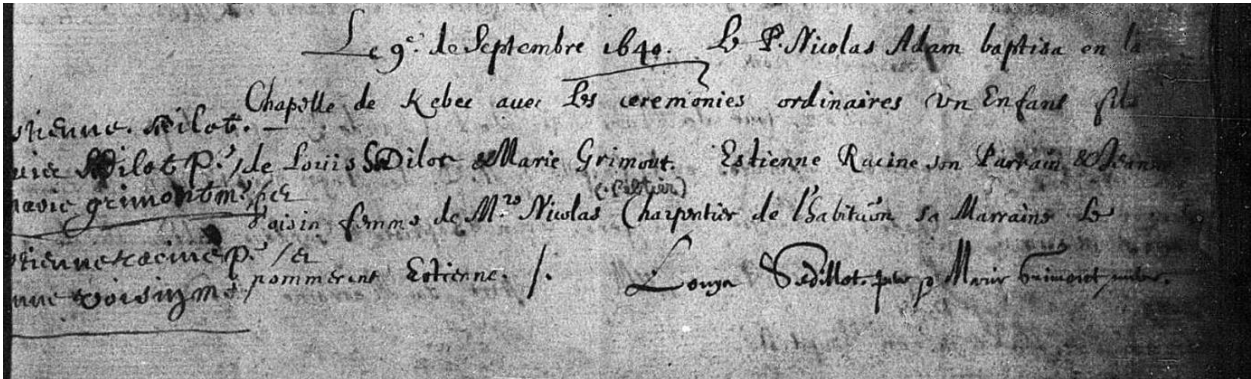 Le 9e. de Septembre 1640. Le P. Nicolas Adam baptisa en la
Chapelle de Kebec avec les ceremonies ordinaires Un Enfant fils
de Louis Sedilot & Marie Grimout. Estienne Racine son Parrain &
(Peltier)
Voisin femme de Mre Nicolas Charpentier de l'habituon sa Marraine le
nommerent Estienne. /.
Louya Sedillot Marie Grimoret
stienne. sedilot.
Sedilot p.
marie grimont m.
stienne racine p.
voisin m.